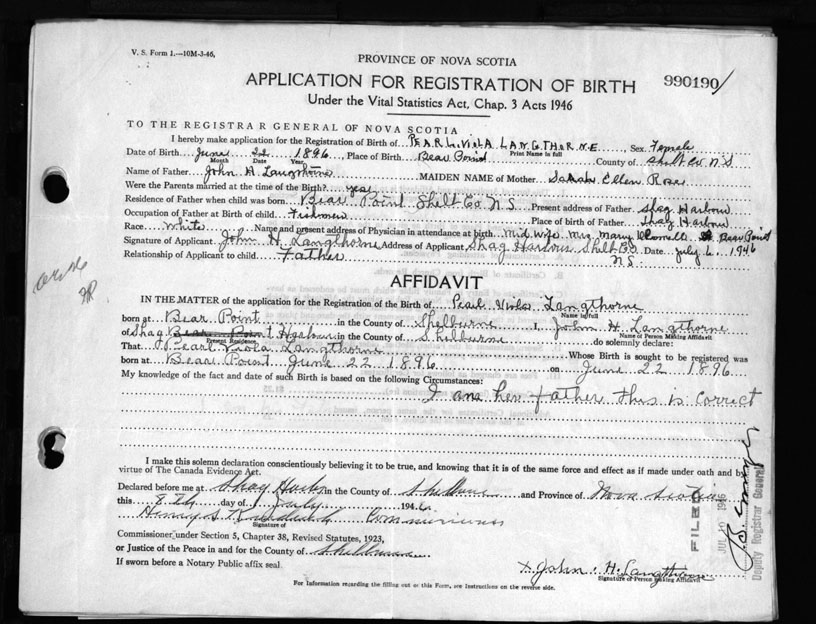 V. S. Form 1.—10M-3-46.
PROVINCE OF NOVA SCOTIA
APPLICATION FOR REGISTRATION OF BIRTH
990190/
Under the Vital Statistics Act, Chap. 3 Acts 1946
TO THE REGISTRAR GENERAL OF NOVA SCOTIA
I hereby make application for the Registration of Birth of PEARL VIOLA LANGTHORNE Sex Female
Print Name in full
Date of Birth June 22 1896 Place of Birth Bear Point County of Shelt Co N S
Month Date Year
Name of Father John H Langthorne MAIDEN NAME of Mother Sarah Ellen Ross
Were the Parents married at the time of the Birth? yes
Residence of Father when child was born Bear Point Shelt Co N S Present address of Father Shag Harbour
Occupation of Father at Birth of child Fishmen Place of birth of Father Shag Harbour
Race white Name and present address of Physician in attendance at birth Mid wife Mrs Mary Bear Point
Signature of Applicant John H Langthorne Address of Applicant Shag Harbour Shelt Date July 6 1946
N S
Relationship of Applicant to child Father
AFFIDAVIT
IN THE MATTER of the application for the Registration of the Birth of Pearl Viola Langthorne
Name in full
born at Bear Point in the County of Shelburne I, John H Langthorne
Name of Person Making Affidavit
of Shag Bear Point Harbour in the County of Shelburne do solemnly declare:
Present Residence
That Pearl Viola Langthorne Whose Birth is sought to be registered was
born at Bear Point June 22 1896 on June 22 1896
My knowledge of the fact and date of such Birth is based on the following Circumstances:
I am her father this is correct
I make this solemn declaration conscientiously believing it to be true, and knowing that it is of the same force and effect as if made under oath and by
virtue of The Canada Evidence Act.
Declared before me at Shag Harbor in the County of Shelburne and Province of Nova Scotia
this 8th day of July 1946
Henry Commissioner
Signature of
Commissioner under Section 5, Chapter 38, Revised Statutes, 1923,
or Justice of the Peace in and for the County of Shelburne
If sworn before a Notary Public affix seal.
x John H. Langthorne
Signature of Person Making Affidavit
For Information regarding the filling out of this Form, see Instructions on the reverse side.
FILED
JUL 10 1946
Deputy Registrar General